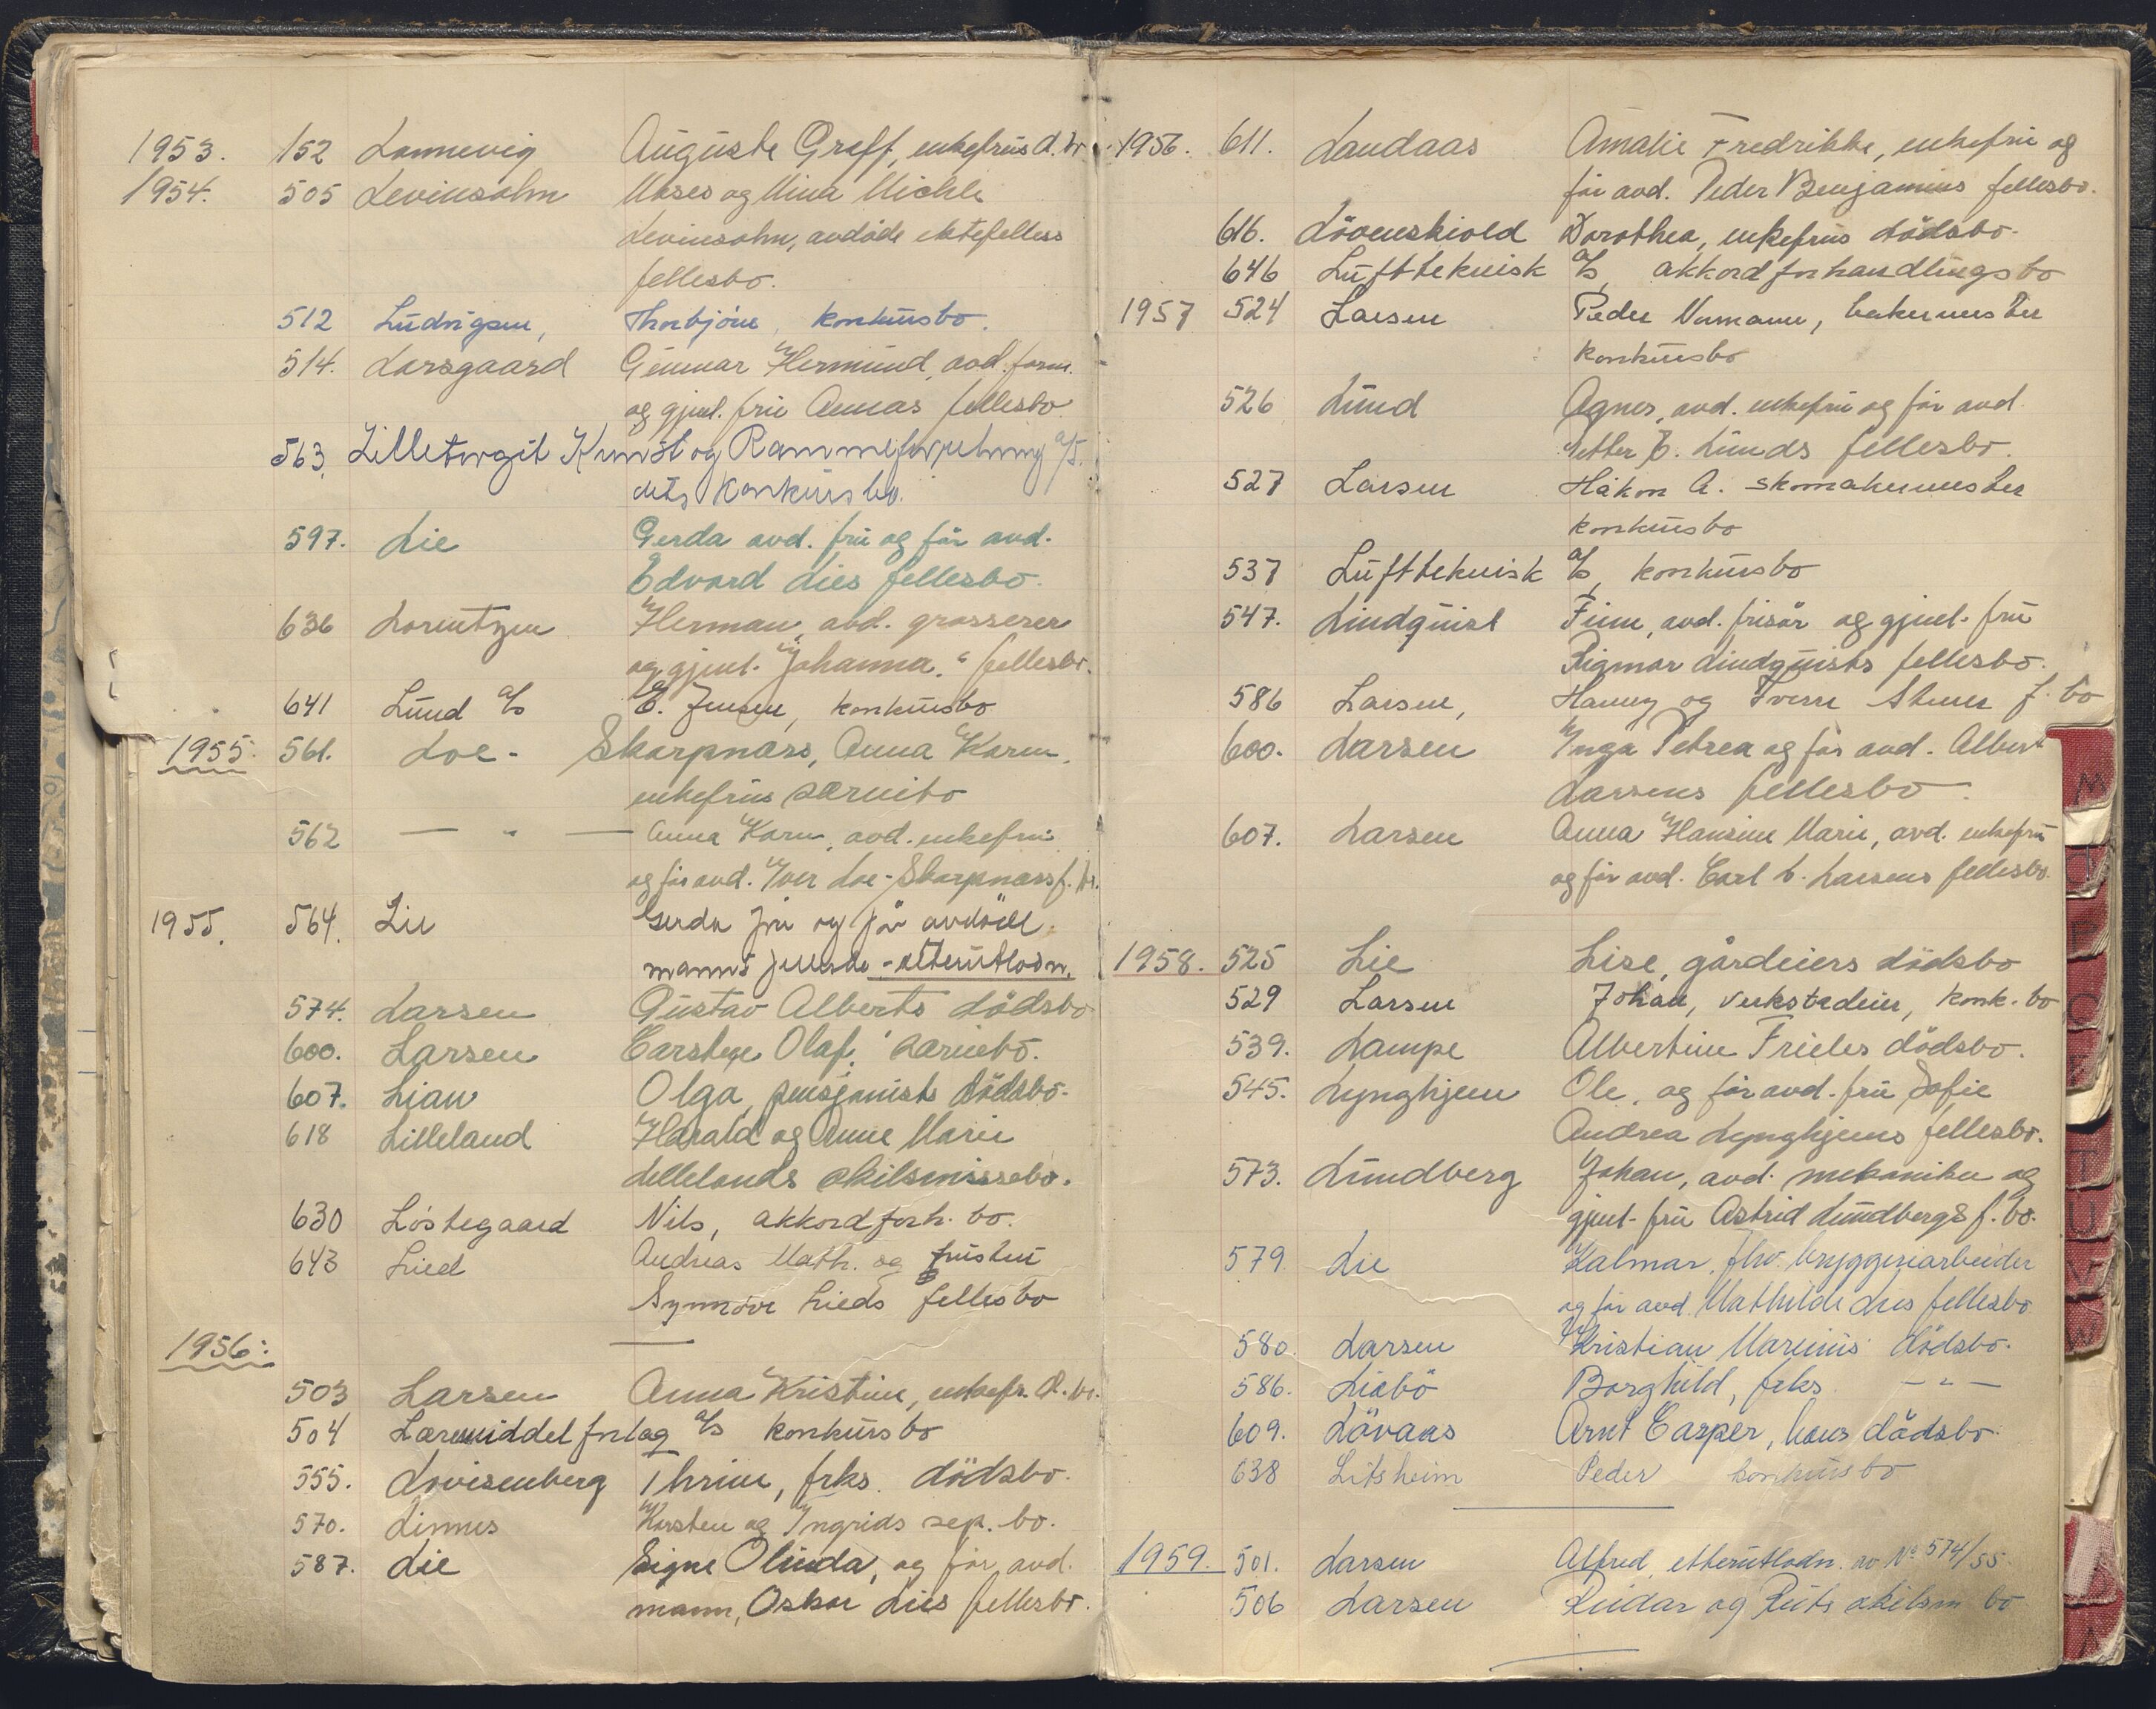 1953. 152 Lonnevig Auguste Greff, enkefrus d. bo
1954. 505 Levinsohn Moses og Mina Michle
Levinsohn, avdöde ektefellers
fellesbo.
512 Ludvigsen, Thorbjörn, konkursbo.
514. Larsgaard Gunnar Hermund, avd. form.
og gjenl. fru Annas fellesbo
563. Lilletorget Kunst og Rammeforretning A/S.
dets konkursbo.
597. Lie Gerda avd. fru og för avd.
Edvard Lies fellesbo.
636 Lorentzen Herman, avd. grosserer
og gjenl. Johanna " fellesbo.
641 Lund A/S E. Jensen, konkursbo
1955. 561. Loe - Skarpnæss, Anna Karen,
enkefrus særeibo
562 — " — Anna Karen, avd. enkefru
og för avd. Iver Loe-Skarpnæss f. bo.
1955. 564. Lie Gerda fru og för avdöde
manns fellesbo - etterutlodn.
574. Larsen Gustav Alberts dödsbo
600. Larsen Carsten Olaf, særeiebo.
607. Lian Olga, pensjonists dödsbo.
618 Lilleland Harald og Anne Marie
Lillelands skilsmissebo.
630 Löstegaard Nils, akkordforh. bo.
643 Lied Andreas Math. og hustru
Synnöve Lieds fellesbo
1956:
503 Larsen Anna Kristine, enkefr. d. bo.
504 Læremiddelforlag A/S konkursbo
555. Lovisenberg Thrine, frks. dödsbo.
570. Linnes Karsten og Ingrids sep. bo.
587. Lie Signe Olinda, og för avd.
mann, Oskar Lies fellesbo.
1956. 611. Landaas Amalie Fredrikke, enkefru og
för avd. Peder Benjamins fellesbo.
616. Lövenskiold Dorothea, enkefrus dödsbo.
646 Luftteknisk A/S, akkordforhandlingsbo
1957 524 Larsen Peder Normann, bakermester
konkursbo
526 Lund Agnes, avd. enkefru og för avd.
Petter E. Lunds fellesbo.
527 Larsen Håkon A. skomakermester
konkursbo
537 Luftteknisk A/S, konkursbo
547. Lindquist Finn, avd. frisör og gjenl. fru
Rigmor Lindquists fellesbo.
586 Larsen, Hanny og Sverre Stener f. bo
600. Larsen Inga Petrea og för avd. Albert
Larsens fellesbo.
607. Larsen Anna Hansine Marie, avd. enkefru
og för avd. Carl L. Larsens fellesbo.
1958. 525 Lie Lise, gårdeiers dödsbo
529 Larsen Johan, verkstedeier, konk. bo
539. Lampe Albertine Frieles dödsbo.
545. Lynghjem Ole, og för avd. fru Sofie
Andrea Lynghjems fellesbo.
573. Lundberg Johan, avd. mekaniker og
gjenl. fru Astrid Lundbergs f. bo.
579 Lie Kalmar, fhv. bryggeriarbeider
og för avd. Mathilde Lies fellesbo
580. Larsen Kristian Marinius dödsbo.
586. Liabö Borghild, frks. — " —
609. Lövaas Arnt Casper, hans dödsbo.
638 Litsheim Peder konkursbo
1959. 501. Larsen Alfred, etterutlodn. av No 574/55.
506 Larsen Reidar og Ruts skilsm bo